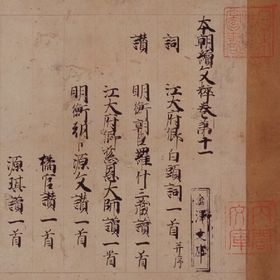 本朝續文粹卷第十一
詞
江大府卿白頭詞一首 并序
讃
明衡朝臣羅什三藏讃一首
江大府卿慈恩大師讃一首
明衡朝臣源文讃一首
橘官讃一首
源琪讃一首